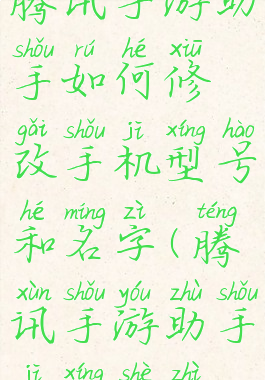 腾讯手游助
shǒu rú hé xiū
手如何修
gǎi shǒu jī xíng hào
改手机型号
hé míng zì téng
和名字(腾
xùn shǒu yóu zhù shǒu
讯手游助手
jī xíng shè zhì